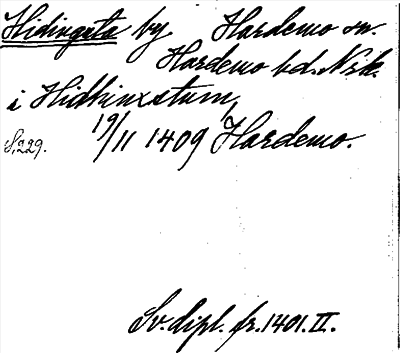 Hidingsta by Hardemo sn.
Hardemo hd. Nrk.
i Hidhinxstum,
19/11 1409 Hardemo.
S. 229.
Sv. dipl. fr. 1401. II.